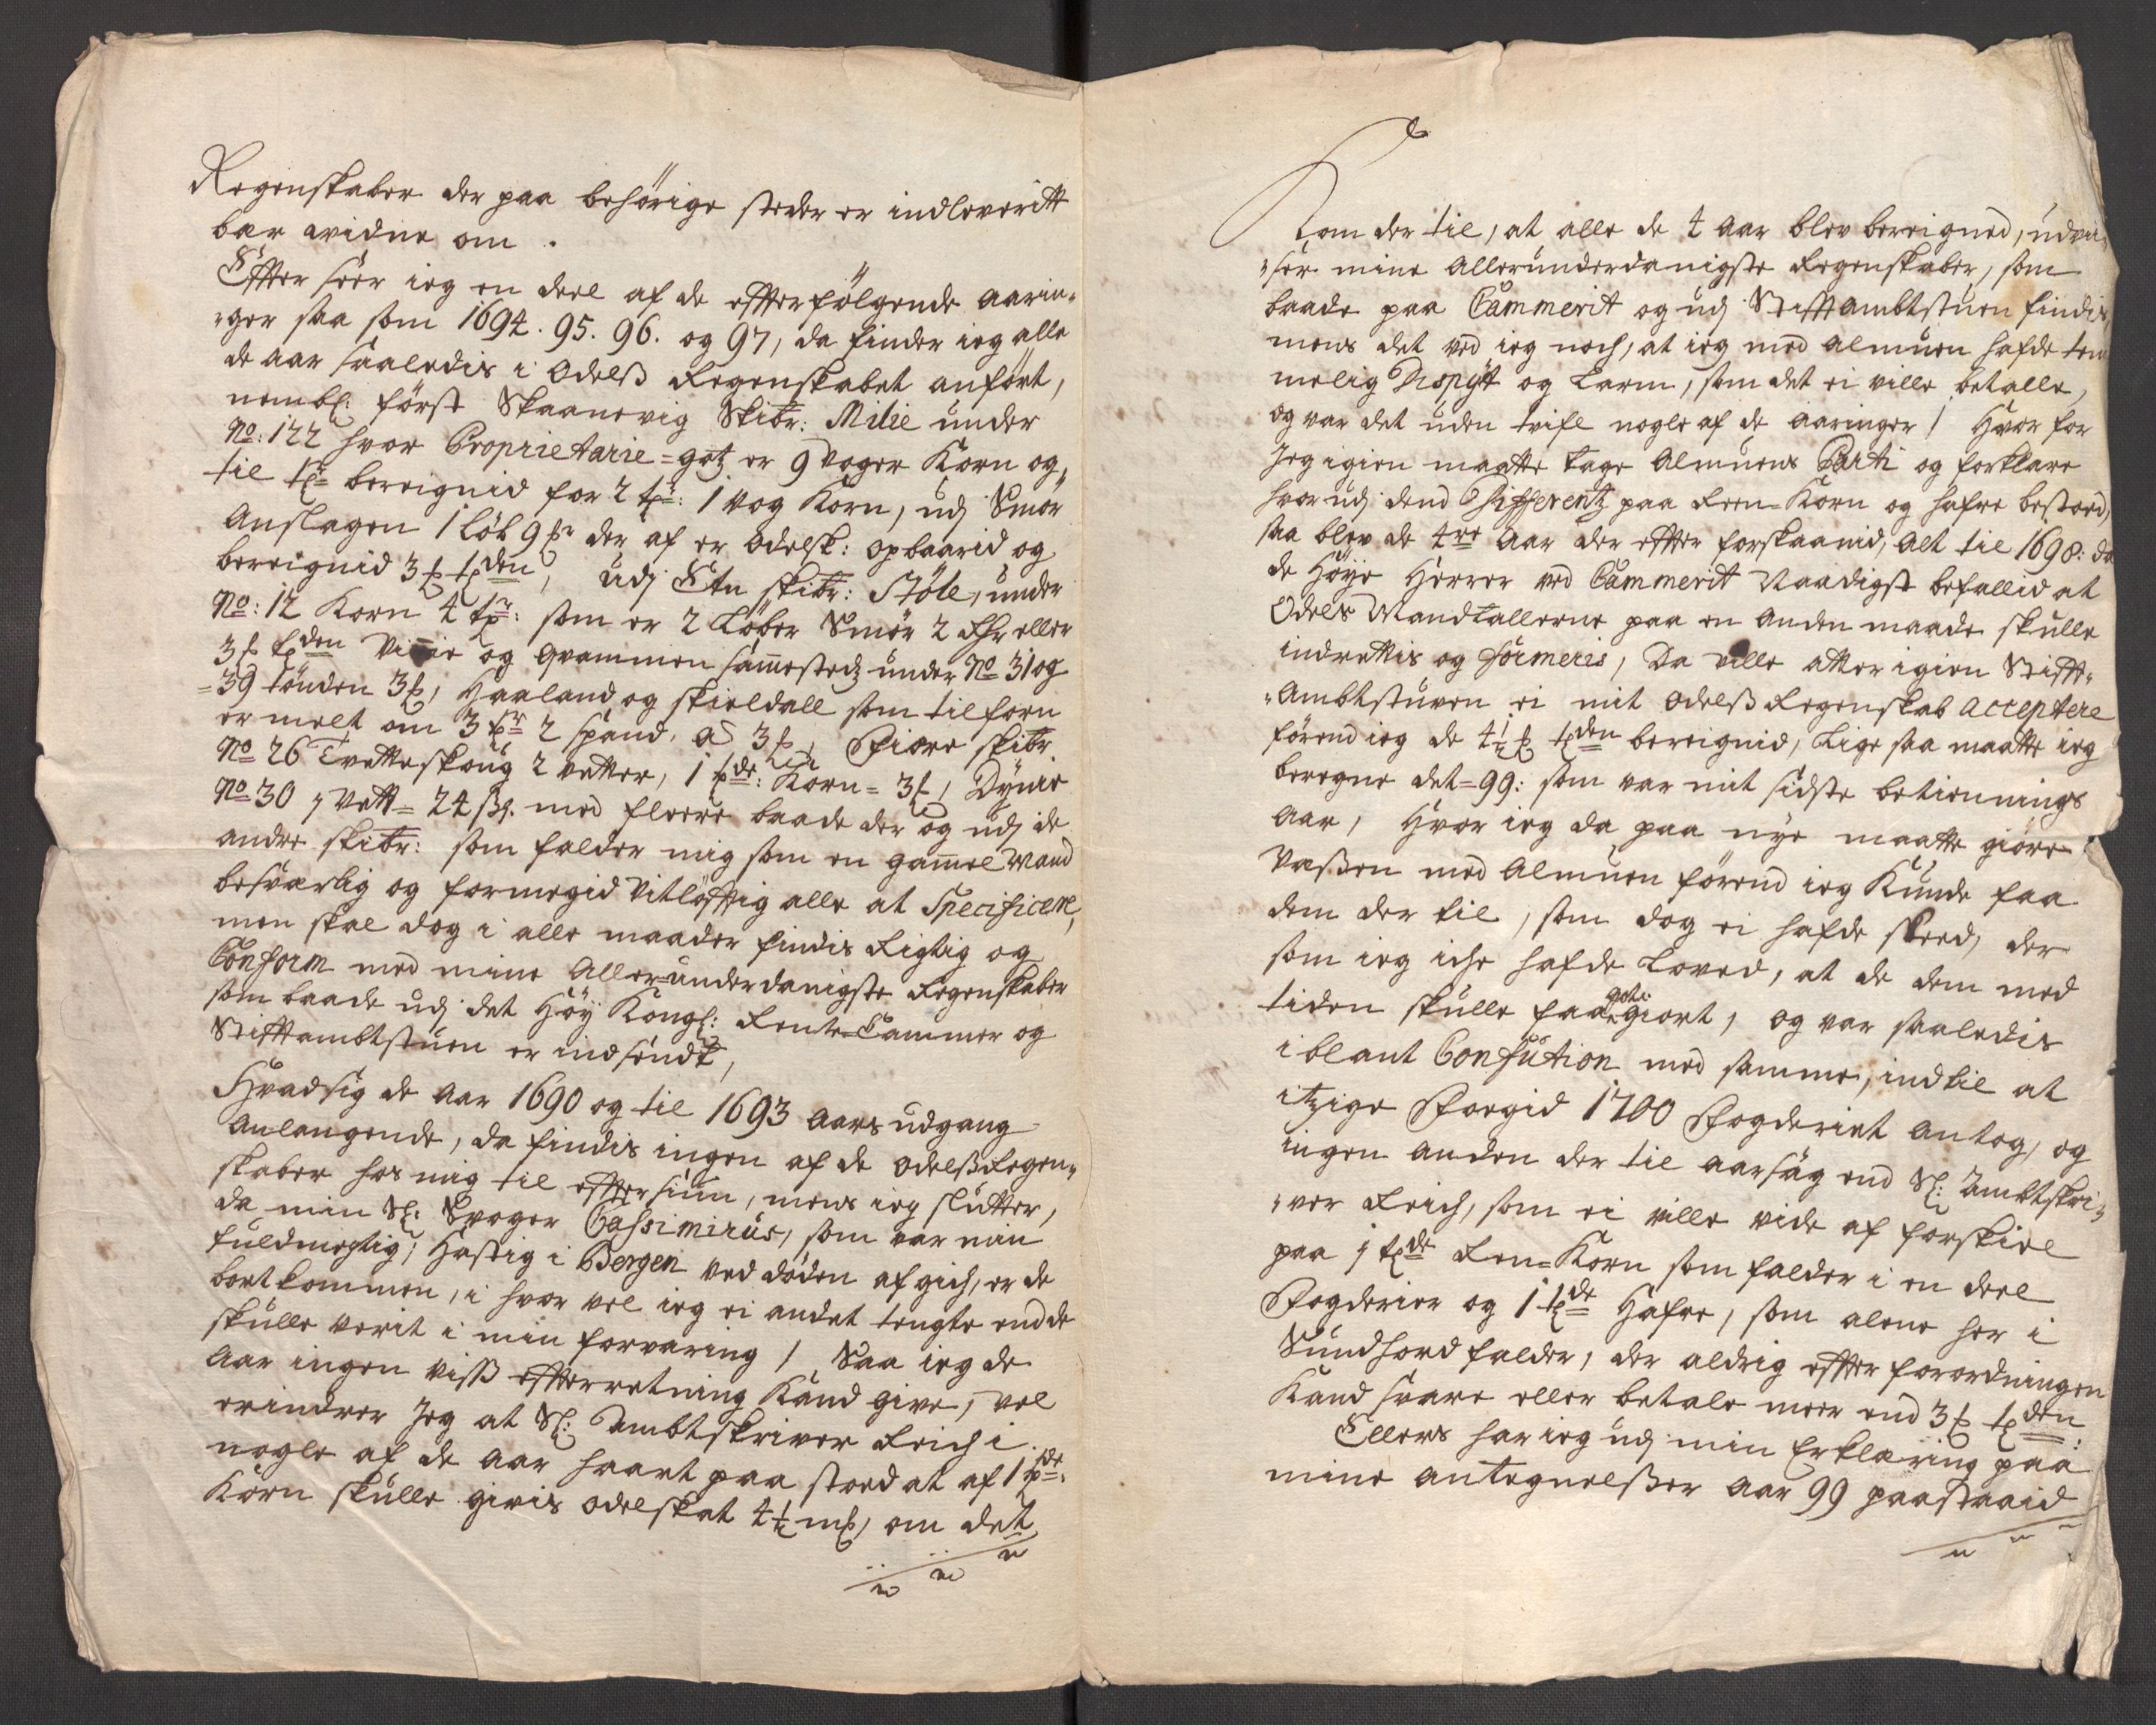 Regenskaber der paa behörige steder er indleveritt
bær vidne om.
Effter seer ieg en deel af de effterfölgende aarin-
-ger saa som 1694. 95. 96. og 97, da finder ieg alle
de aar saaledis i Odelß Regenskabet anfört,
nembl: först Skaanevig Skibr: Milie under
No: 122 hvor Proprietarie=gotz er 9 voger Korn og
til bereignid for 2 1 vog Korn, udj Smör
Anslagen 1 löb 9 der af er Odelsk: opbaarid og
bereignid 3 den, udj Etn skibr: Stöle, under
No: 12 Korn 4 som er 2 Löber Smör 2 eller
3 den og qvammen sammestedz under No 31 og
=39 tönden 3 Haaland og skieldall som tilforn
er melt om 3 2 spand, a 3 Fiære skibr
No 26 Tvetteskoug 2 vetter, 1 Korn = 3 Dymie
No 30 1 Vett= 24 ßl. med fleere baade der og udj de
andre skibr: som falder mig som en gammel Mand
besværlig og formegid vitlöfftig alle at Specificere,
men skal dog i alle maader findis Rigtig og
Conform med mine Allerunderdanigste Regenskaber
som baade udj det Höy Kongl: Rente=Cammer og
Stifftambtstuen er indsendt,
Hvadsig de Aar 1690 og til 1693 Aars udgang
anlangende, da findis ingen af de OdelßRegen-
skaber hos mig til efftersiun, mens ieg slutter,
da min Sl: Svoger Cassimirus, som var min
fuldmegtig, hastig i Bergen ved döden afgich, er de
bortkommen, i hvor vel ieg ei andet tengte end de
skulle verit i min forvaring / Saa ieg de
Aar ingen viss effterretning kand give, vel
erindrer Jeg at Sl: Ambtskriver Reich i
nogle af de Aar haart paa stoed at af 1 
Korn skulle givis Odelskat 4½ m om det
Kom der til, at alle de 4 aar blev bereigned, udvi-
-ser mine Allerunderdanigste Regenskaber, som
baade paa Cammerit og udj Stifftambtstuen findis
mens det ved ieg noch, at ieg med almuen hafde tem
melig Disput og Larm, som det ei ville betalle,
og var det uden tvifl nogle af de aaringer / Hvor for
Jeg igien maatte tage Almuens Parti og forklare
hvor udj dend Differentz paa Reen=Korn og hafre bestoed,
saa blev de 4re Aar der effter forskaanid, alt til 1698: da
de Höye Herrer ved Cammerit Naadigst befallid at
Odels Mandtallerne paa en anden maade skulle
indrettis og formeris, Da ville atter igien Stifft-
-Ambtstuven ei mit Odelß Regenskab Acceptere
förend ieg de 4½ den bereignid, Lige saa maatte ieg
beregne det= 99: som var mit sidste betiennings
Aar, Hvor ieg da paa nye maatte giöre
Vaßen med Almuen förend ieg kunde faa
dem der til, som dog ei hafde skeed, der
som ieg iche hafde Loved, at de dem med
tiden skulle faa got giort, og var saaledis
i blant Confution med samme, indtil at
itzige Foegid 1700 Fogderiet antog, og
ingen anden der til aarsag end Sl: Ambtskri-
-ver Reich, som ei ville vide af forskiel
paa 1 Ren=Korn som falder i en deel
Fogderier og 1 Hafre, som alene her i
Sundhord falder, der aldrig effter forordningen
kand svare eller betale meer end 3 den
Ellers har ieg udj min Erklæring paa
mine antegnelßer Aar 99 paastaaid